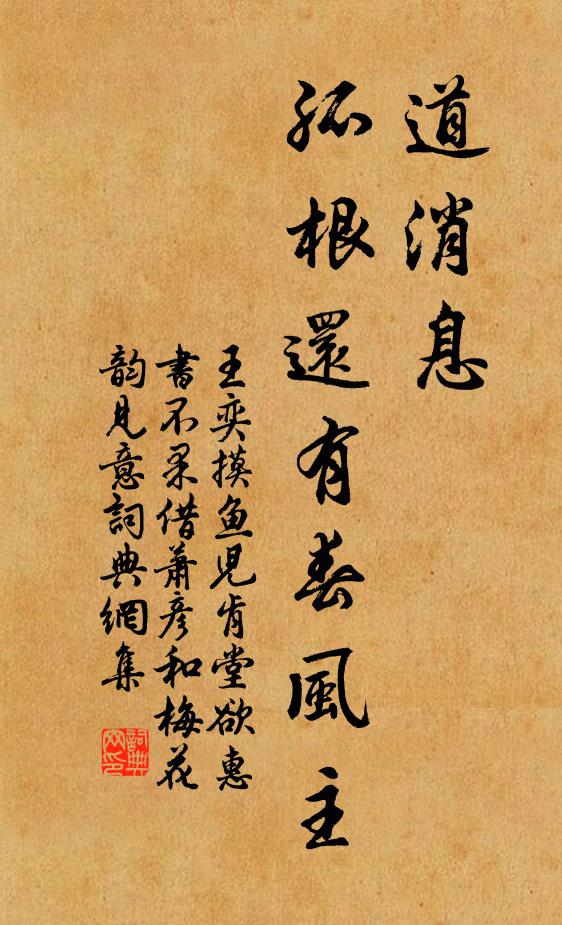 道消息
孤根還有春風主
王奕摸魚兒肯堂欲惠
書不果借蕭彥和梅花
韵見意詞典網集
詞典网印